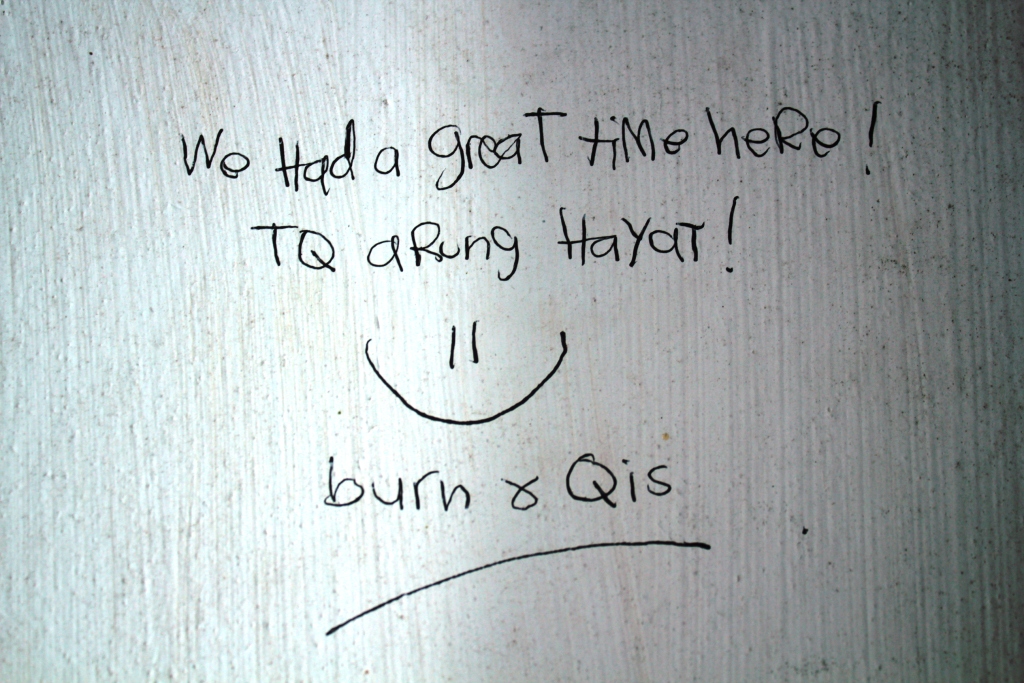 We Had a greaT tiMe heRe!
TQ aRung HaYaT!
burn & Qis